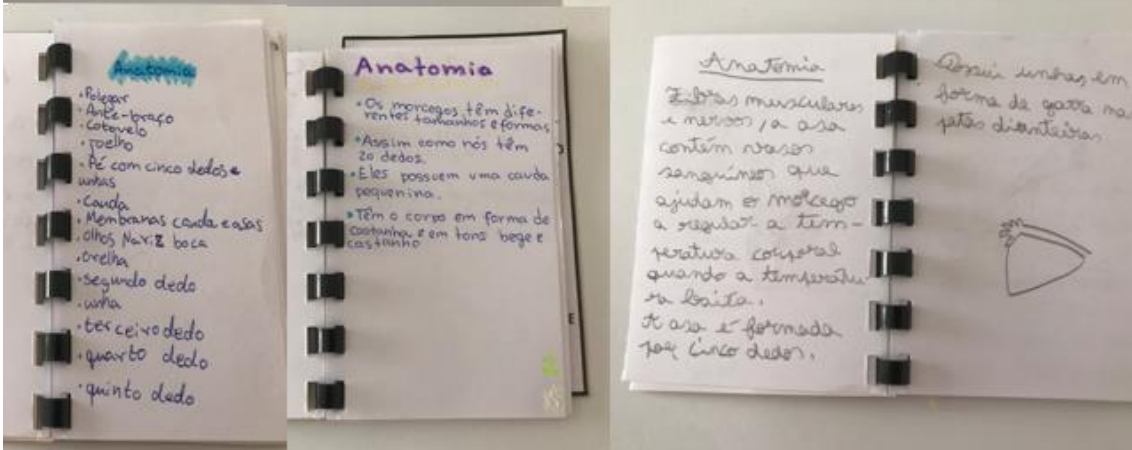 Anatomia
• Polegar
• Ante-braço
• Cotovelo
• joelho
• Pé com cinco dedos e
unhas
• Cauda
• Membranas cauda e asas
• olhos Nariz boca
• orelha
• segundo dedo
• unha
• terceiro dedo
• quarto dedo
• quinto dedo
Anatomia
• Os morcegos têm dife-
rentes tamanhos e formas
• Assim como nós têm
20 dedos.
• Eles possuem uma cauda
pequenina.
• Têm o corpo em forma de
castanha e em tons bege e
castanho
E
Anatomia
Fibras musculares
e nervos, a asa
contém vasos
sanguíneos que
ajudam o morcego
a regular a tem-
peratura corporal
quando a temperatu-
ra baixa.
A asa é formada
por cinco dedos.
Possui unhas em
forma de garra nas
patas dianteiras.